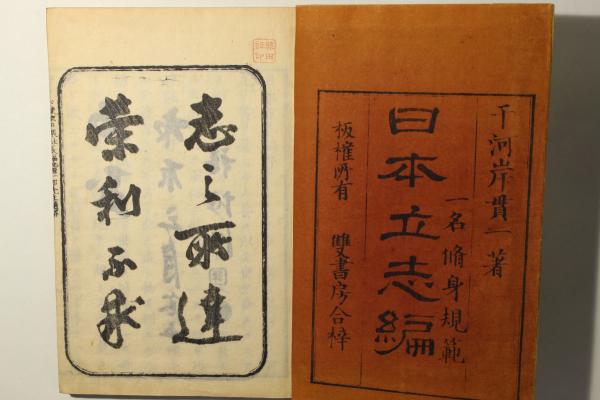 干河岸貫一著
日本立志編
一名脩身規範
板權所有 雙書房合梓
志之所達
榮利不